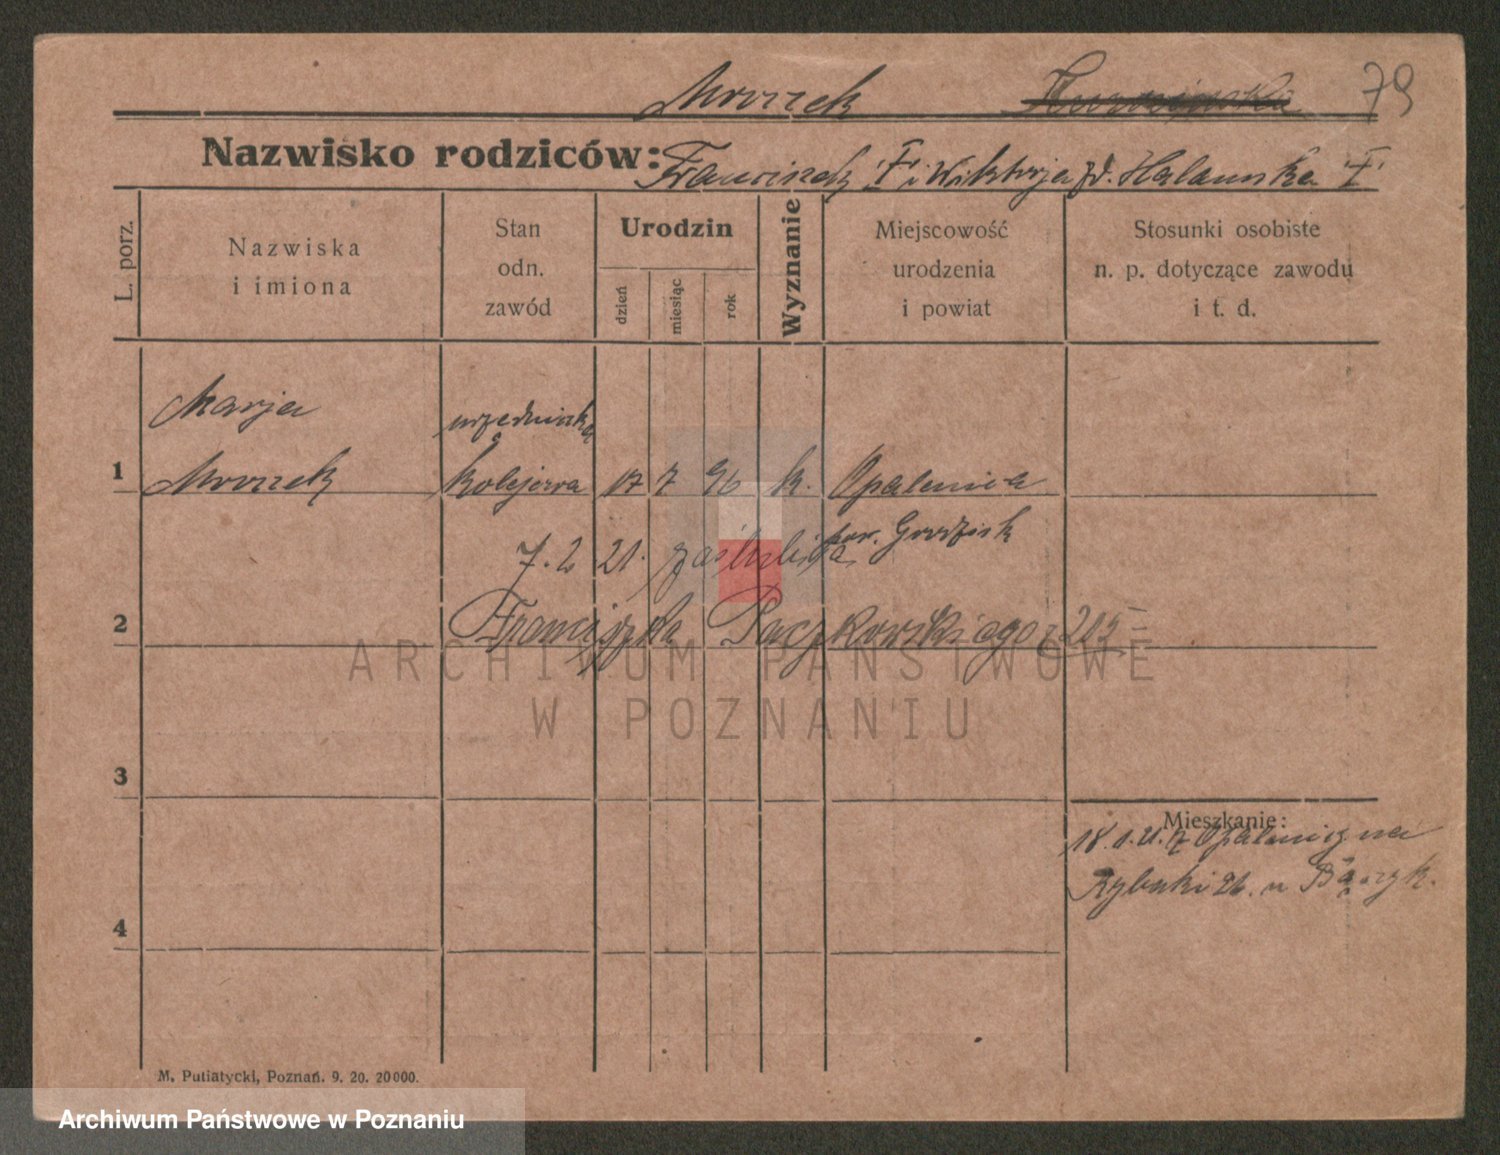 Mrozek 79
Nazwisko rodziców: Franciszek † i Wiktorja zd. Halamska †
L. porz.
Nazwiska
i imiona
Stan
odn.
zawód
Urodzin
dzień
miesiąc
rok
Wyznanie
Miejscowość
urodzenia
i powiat
Stosunki osobiste
n. p. dotyczące zawodu
i t. d.
Marja urzędniczka
1 Mrozek kolejowa 17 7 96 k. Opalenica
pow. Grodzisk
7. 2 21. zaślubiła
2 Franciszka Paczkowskiego z 205
3
Mieszkanie:
18.1.21. z Opalenicy na
Rybaki 26. u
4
M. Putiatycki, Poznań. 9. 20. 20000.
ARCHIWUM PAŃSTWOWE
W POZNANIU
Archiwum Państwowe w Poznaniu